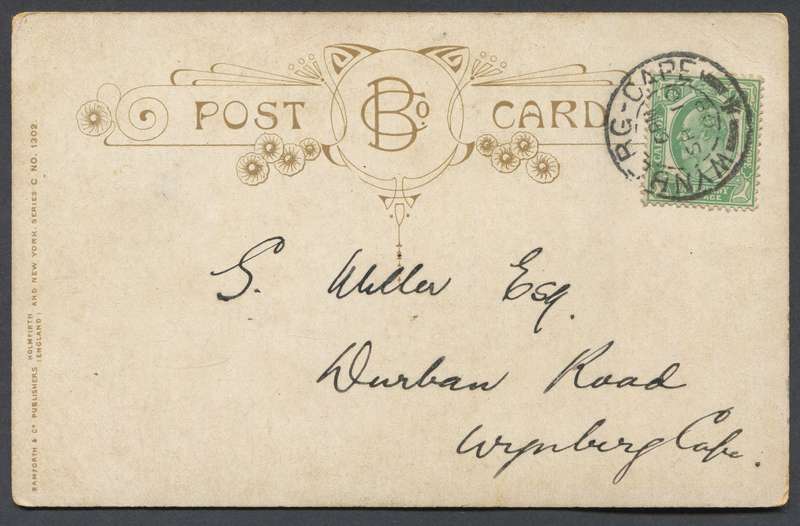 POST BCo. CARD
WYNBERG-CAPE
S. Miller Esq.
Durban Road
Wynberg Cape.
BAMFORTH & Co PUBLISHERS HOLMFIRTH (ENGLAND) AND NEW YORK. SERIES C NO. 1302